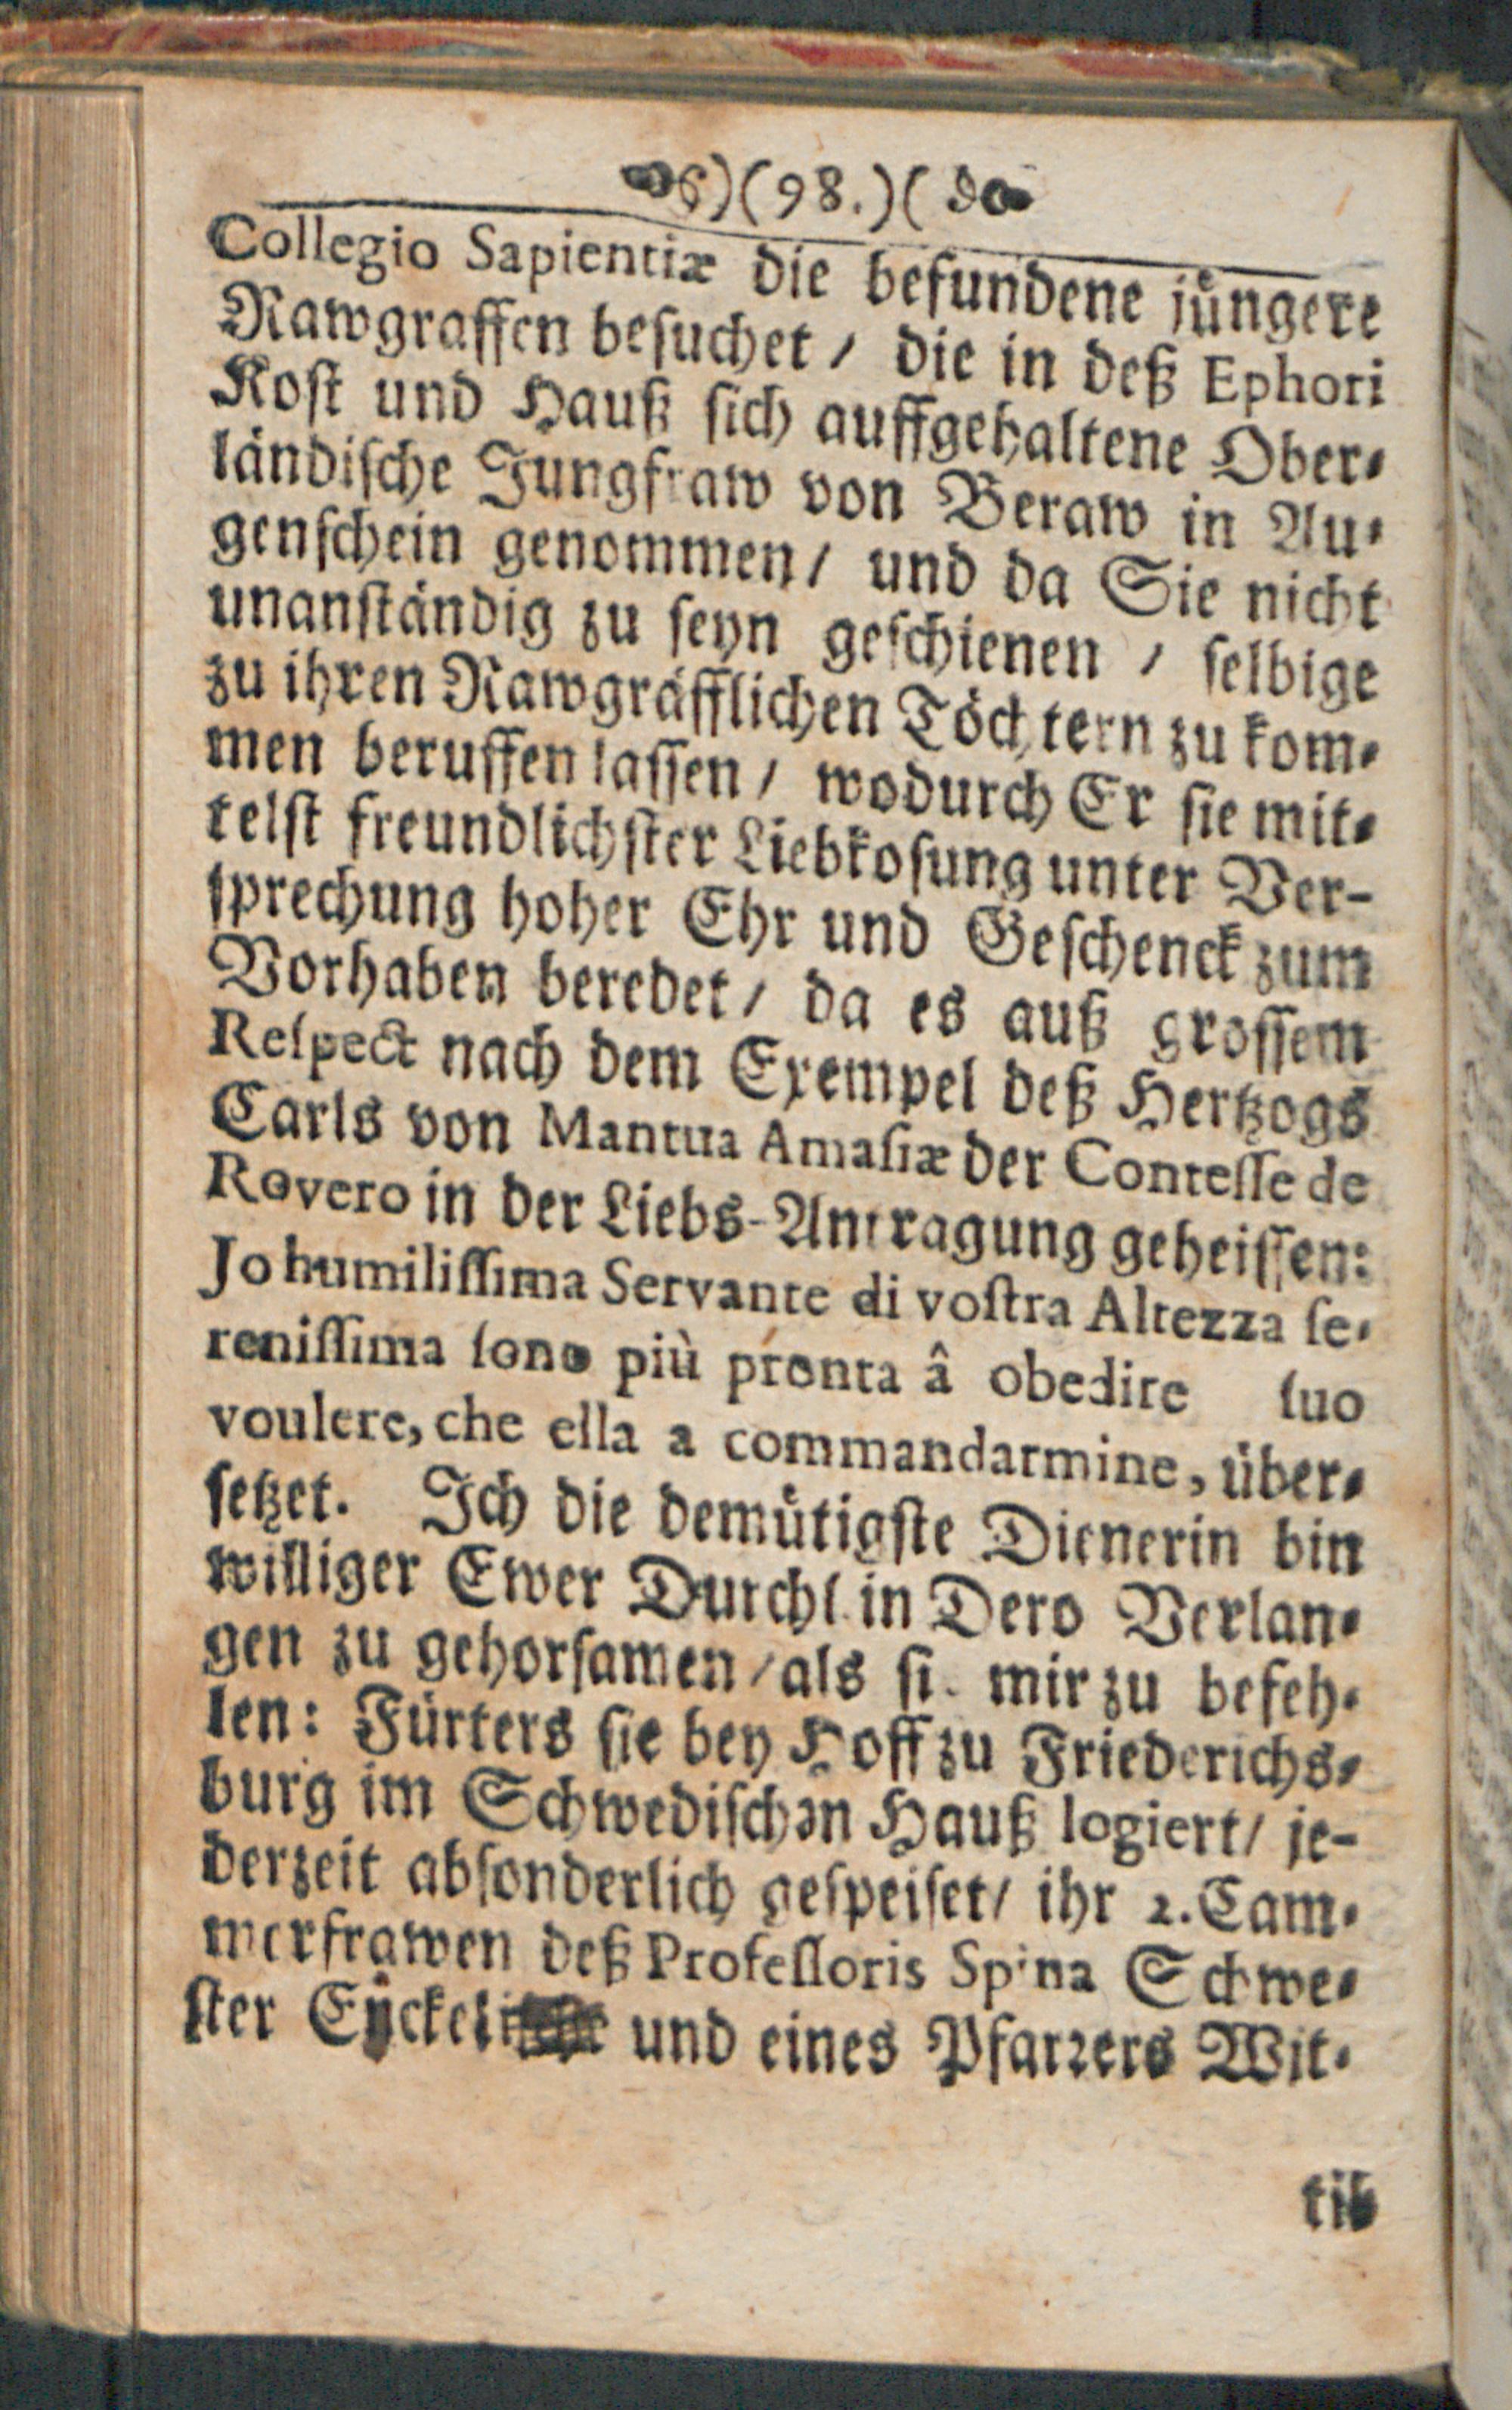 )(98.)(
Collegio Sapientiæ die befundene jüngere
Rawgraffen besuchet / die in deß Ephori
Kost und Hauß sich auffgehaltene Ober-
ländische Jungfraw von Beraw in Au-
genschein genommen / und da Sie nicht
unanständig zu seyn geschienen / selbige
zu ihren Rawgräfflichen Töchtern zu kom-
men beruffen lassen / wodurch Er sie mit-
telst freundlichster Liebkosung unter Ver-
sprechung hoher Ehr und Geschenck zum
Vorhaben beredet / da es auß grossem
Respect nach dem Exempel deß Hertzogs
Carls von Mantua Amasiæ der Contesse de
Rovero in der Liebs-Antragung geheissen:
Jo humilissima Servante di vostra Altezza se-
renissima sono più pronta â obedire suo
voulere, che ella a commandarmine, über-
setzet. Ich die demütigste Dienerin bin
williger Ewer Durchl. in Dero Verlan-
gen zu gehorsamen / als si. mir zu befeh-
len: Fürters sie bey Hoff zu Friederichs-
burg im Schwedischen Hauß logiert / je-
derzeit absonderlich gespeiset / ihr 2. Cam-
merfrawen deß Professoris Spina Schwe-
ster und eines Pfarrers Wit-
tib